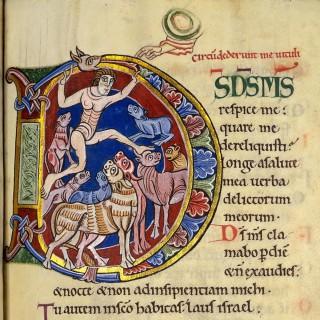 Circūdederunt me uituli
DSDSMS
respice me:
quare me
dereliquisti:
longe a salute
mea uerba
delictorum
meorum.
Dſ mſ cla
mabo p diē
& ñ exaudies:
& nocte & non ad insipientiam michi.
Tu autem in scō habitas: laus israel.